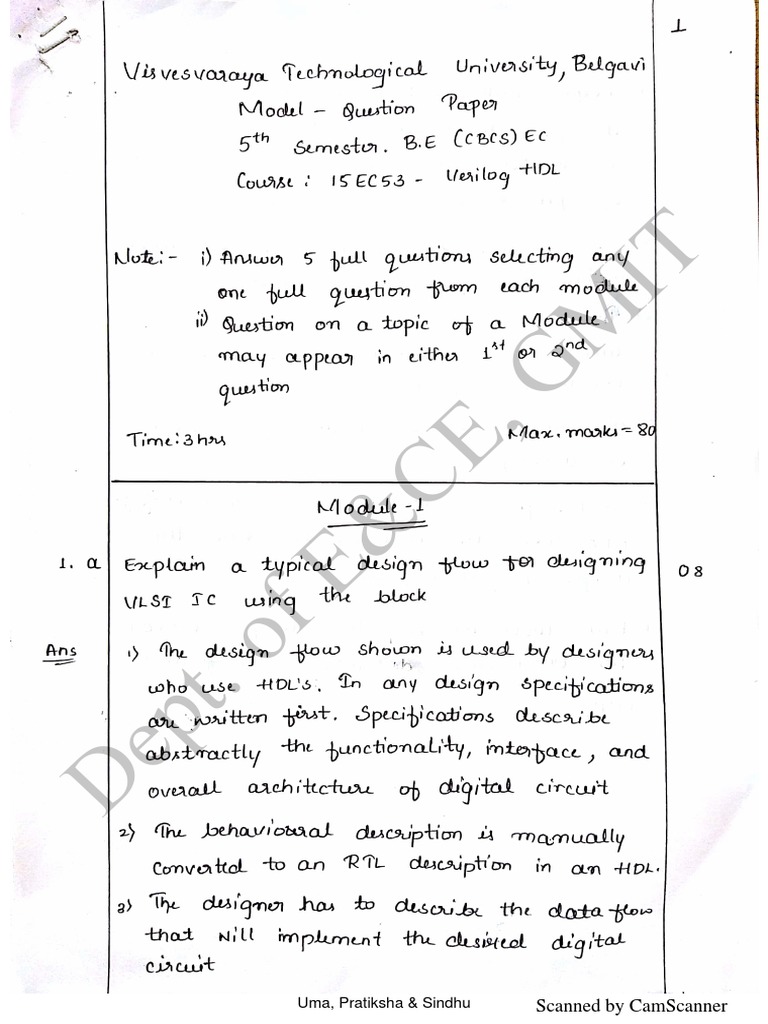 1
Visvesvaraya Technological University, Belgavi
Model - Question Paper
5th Semester. B.E (CBCS) EC
Course: 15EC53 - Verilog HDL
Note:- i) Answer 5 full questions selecting any
one full question from each module
ii) Question on a topic of a Module
may appear in either 1st or 2nd
question
Time: 3 hrs Max. marks = 80
Module -1
1. a Explain a typical design flow for designing 08
VLSI IC using the block
Ans 1) The design flow shown is used by designers
who use HDL's. In any design specifications
are written first. Specifications describe
abstractly the functionality, interface, and
overall architecture of digital circuit
2) The behavioural description is manually
converted to an RTL description in an HDL.
3) The designer has to describe the data flow
that will implement the desired digital
circuit
Dept. of E&CE, GMIT
Uma, Pratiksha & Sindhu
Scanned by CamScanner